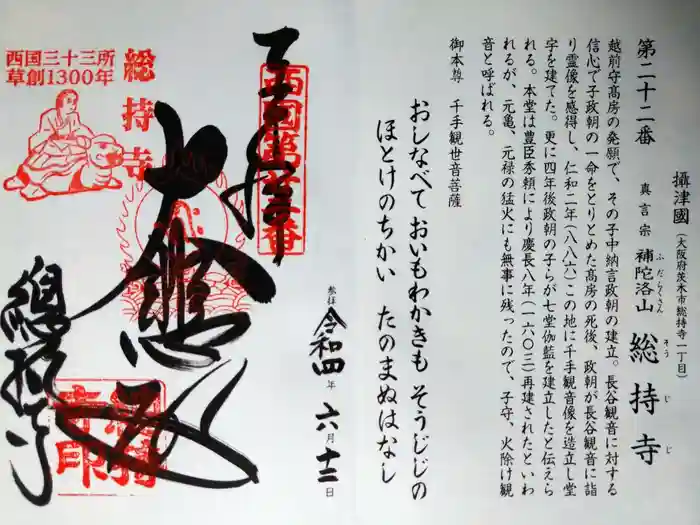 第二十二番
攝津國（大阪府茨木市総持寺一丁目）
真言宗 補陀洛山 総持寺
ふだらくさん そうじじ
越前守髙房の発願で、その子中納言政朝の建立。長谷観音に対する
信心で子政朝の一命をとりとめた髙房の死後、政朝が長谷観音に詣
り霊像を感得し、仁和二年（八八六）この地に千手観音像を造立し堂
宇を建てた。更に四年後政朝の子らが七堂伽藍を建立したと伝えら
れる。本堂は豊臣秀頼により慶長八年（一六〇三）再建されたといわ
れるが、元亀、元禄の猛火にも無事に残ったので、子守、火除け観
音と呼ばれる。
御本尊 千手観世音菩薩
おしなべて おいもわかきも そうじじの
ほとけのちかい たのまぬはなし
参拝 令和四年 六月十二日
西国第廿二番
大悲殿
総持寺
西国三十三所
草創1300年
総持寺